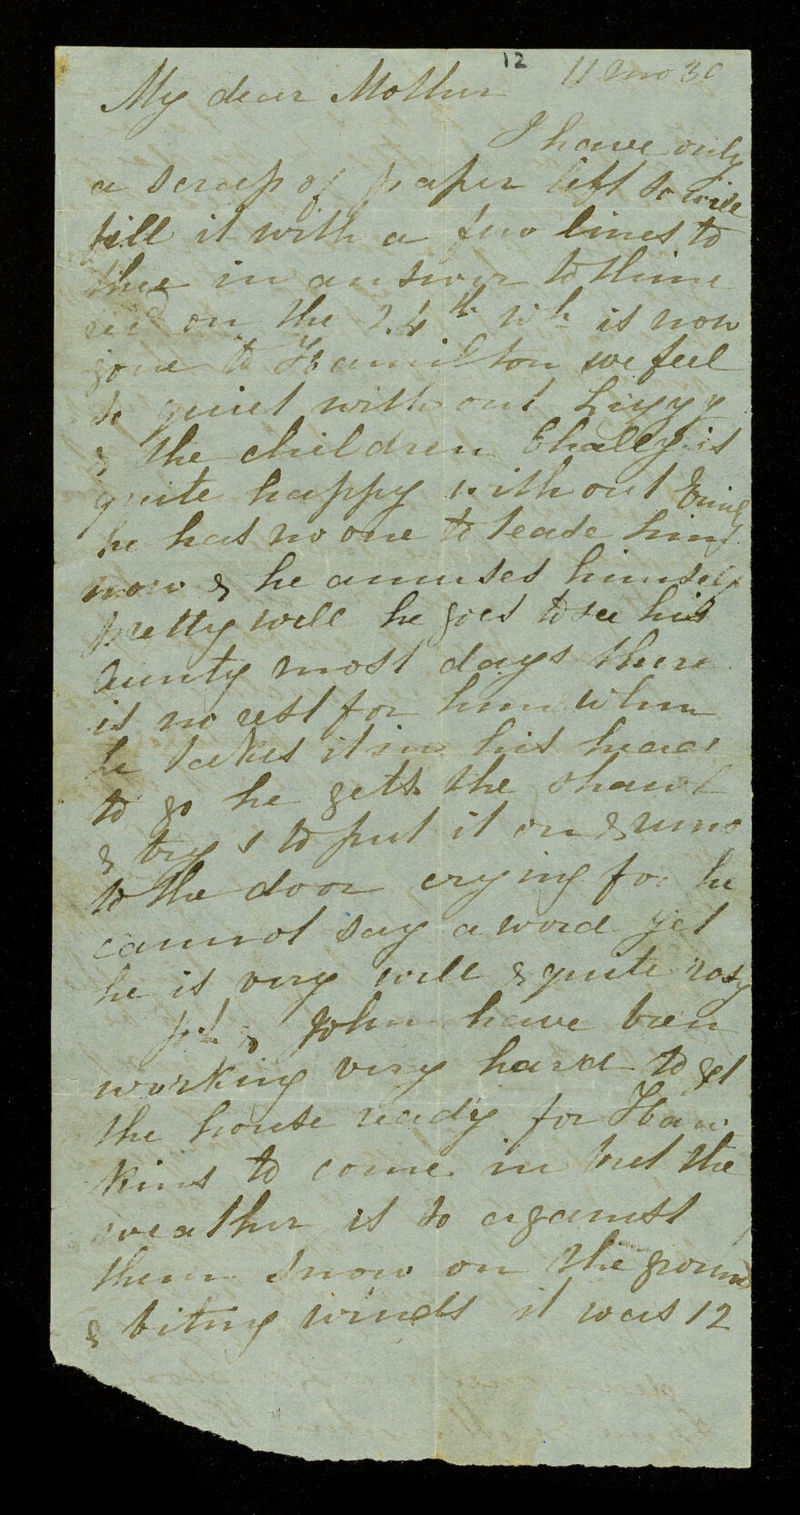 12 11 mo 30
My dear Mother
I have only
a scrap of paper left so will
fill it with a few lines to
thee in answer to thine
recd on the 24th wh is now
gone to Hamilton we feel
so quiet without Lizzy
& the children Chally is
quite happy without
he has no one to tease him
now & he amuses himself
pretty well he goes to see his
aunty most days there
is no rest for him when
he takes it in his head
to go he gets the shawl
& trys to put it on & runs
to the door crying for he
cannot say a word yet
he is very well & quite rosy
& John have been
working very hard to get
the house ready for Haw
kins to come in but the
weather is so against
them snow on the ground
& biting winds it was 12